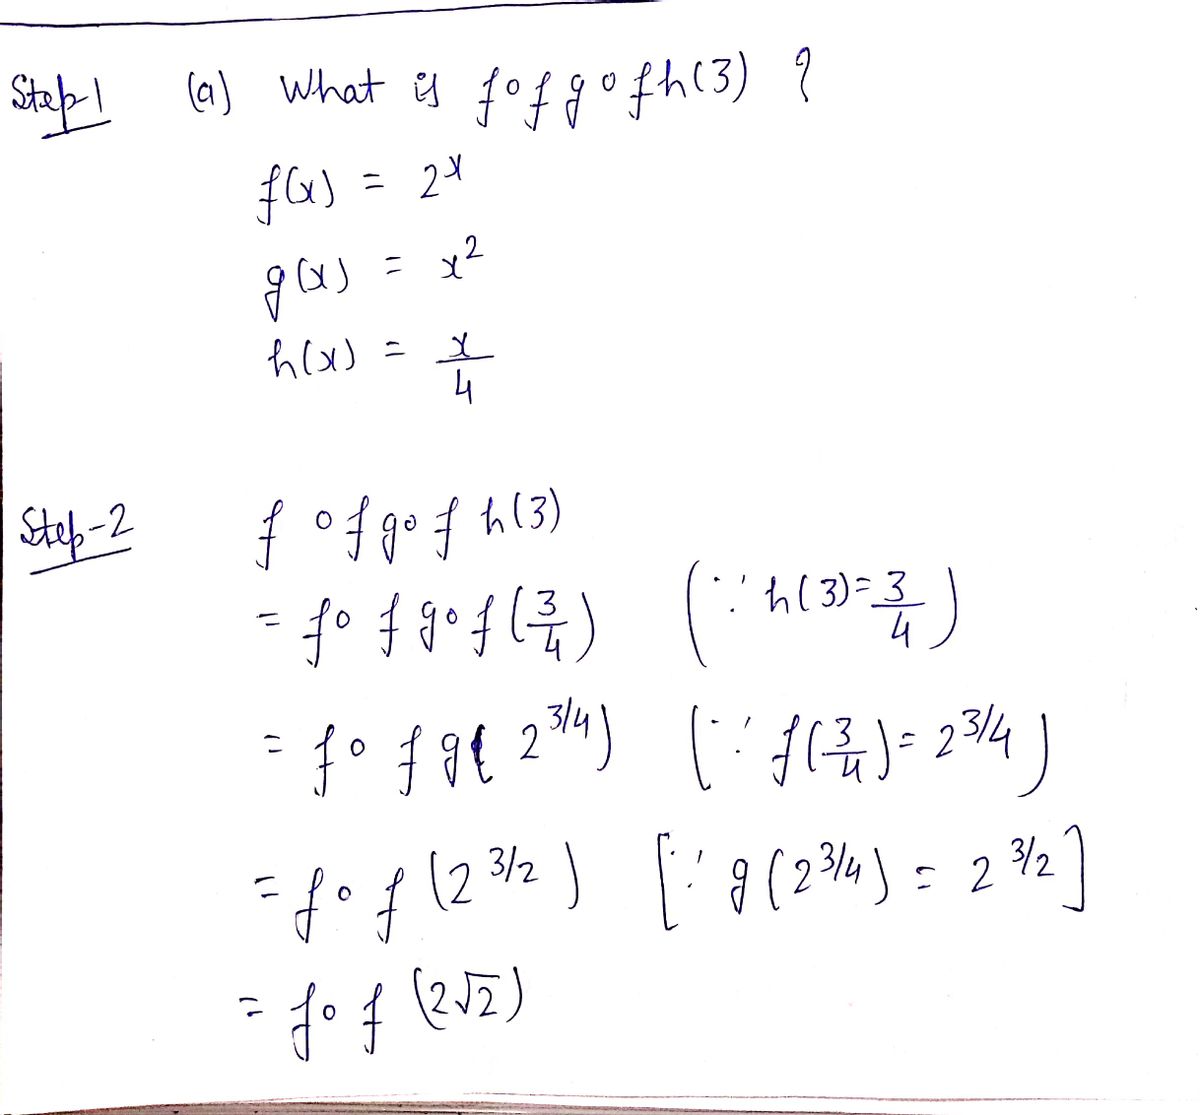 Step-1 (a) What is f∘f g∘f h(3) ?
f(x) = 2^x
g(x) = x^2
h(x) = x/4
Step-2 f ∘f g∘f h(3)
= f∘ f g∘f (3/4) (∵ h(3)=3/4)
= f∘ f g( 2^3/4) (∵ f(3/4)= 2^3/4)
= f∘ f (2^3/2) [∵ g(2^3/4) = 2^3/2]
= f∘ f (2√2)